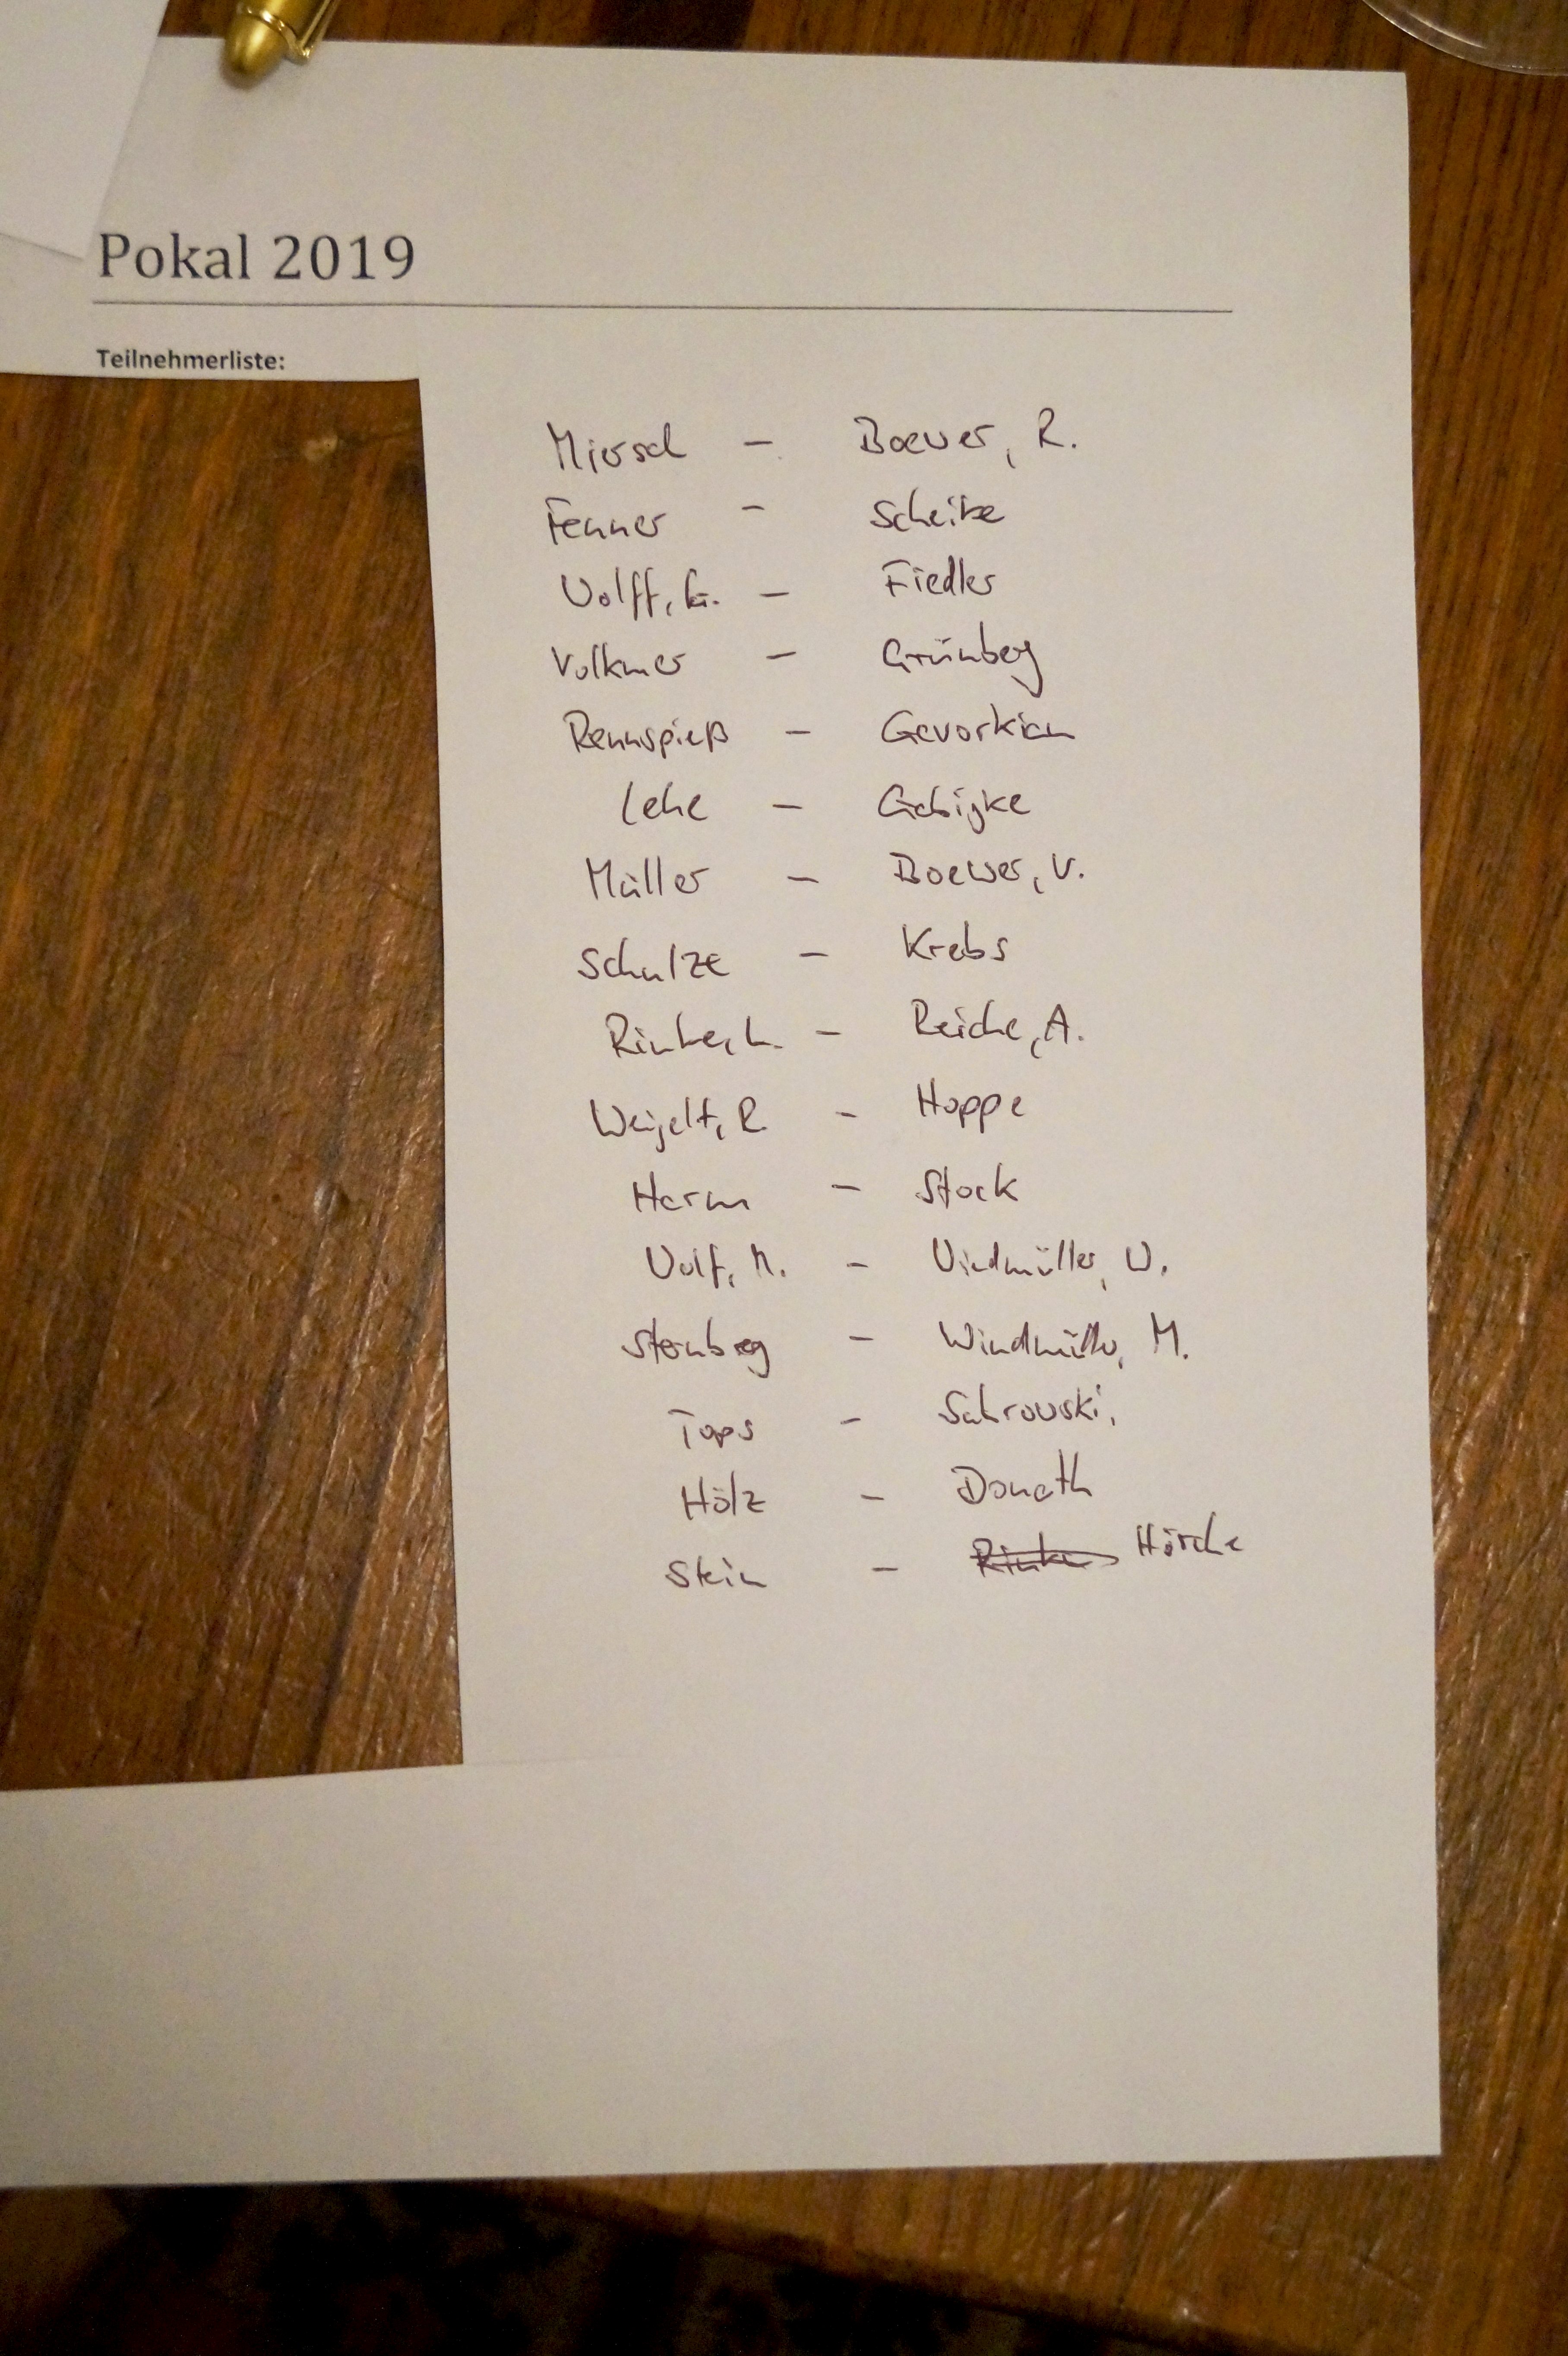 Pokal 2019
Teilnehmerliste:
Miersch – Boewer, R.
Fenner – Scheibe
Wolff, G. – Fiedler
Volkmer – Grünberg
Rennspieß – Gevorkian
Lehe – Gebigke
Müller – Boewer, V.
Schulze – Krebs
Rinke, L. – Reiche, A.
Weigelt, R. – Hoppe
Harm – Stock
Wolf, M. – Windmüller, W.
Stenberg – Windmüller, M.
Tops –
Hölz – Donath
Stein – Rinke Hörche